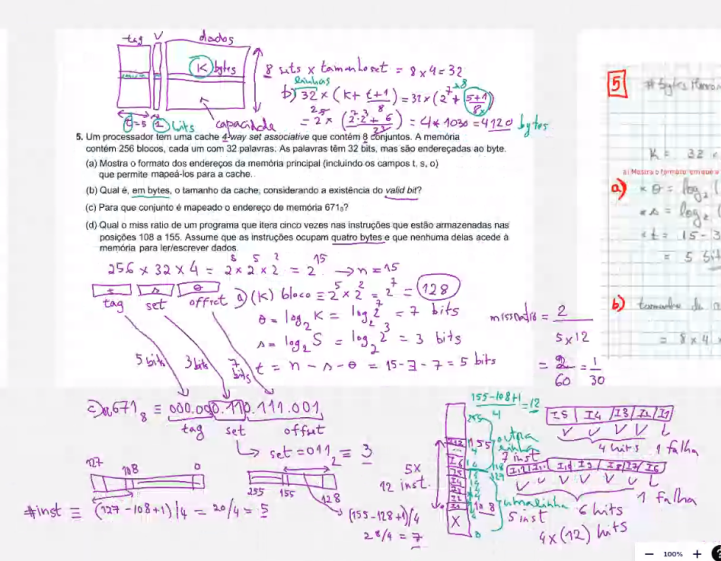 tag V dados
K bytes
8 sets x tamanho set = 8x4 = 32
linhas
b) 32 x (K + t+1/8) = 32 x (2^7 + 5+1/8)
= 4 x 1030 = 4120 bytes
t=5 1 bits capacidade
5. Um processador tem uma cache 4-way set associative que contém 8 conjuntos. A memória
contém 256 blocos, cada um com 32 palavras. As palavras têm 32 bits, mas são endereçadas ao byte.
(a) Mostra o formato dos endereços da memória principal (incluindo os campos t, s, o)
que permite mapeá-los para a cache.
(b) Qual é, em bytes, o tamanho da cache, considerando a existência do valid bit?
(c) Para que conjunto é mapeado o endereço de memória 671₈?
(d) Qual o miss ratio de um programa que itera cinco vezes nas instruções que estão armazenadas nas
posições 108 a 155. Assume que as instruções ocupam quatro bytes e que nenhuma delas acede à
memória para ler/escrever dados.
256 x 32 x 4 = 2^8 x 2^5 x 2^2 = 2^15 → n=15
t s θ
tag set offset
a) (K) bloco = 2^5 x 2^2 = 2^7 = 128
θ = log₂ K = log₂ 2^7 = 7 bits
s = log₂ S = log₂ 2^3 = 3 bits
t = n - s - θ = 15-3-7 = 5 bits
5 bits 3 bits 7 bits
miss ratio = 2 / 5x12
= 2/60 = 1/30
c) 671₈ ≡ 000.000.110.111.001
tag set offset
→ set = 011₂ = 3
127 108 0
#inst ≡ (127-108+1)/4 = 20/4 = 5
255 155 128
(155-128+1)/4
28/4 = 7
155-108+1 / 4 = 12
255
155
outra
linha
7 inst
128
127
108
uma linha
5 inst
X
0
5x
12 inst.
I5 I4 I3 I2 I1
V V V V
4 hits 1 falha
I12 I11 I10 I9 I8 I7 I6
V V V V V V
6 hits 1 falha
4x(12) hits
5
# bytes
K = 32
a) Mostra o formato
a) θ = log₂
s = log₂
t = 15 - 3
= 5 bits
b) tamanho da
= 8 x 4 x
100%